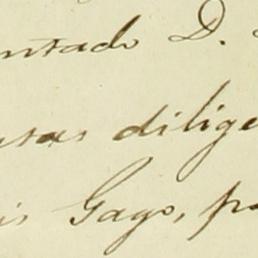 ntado D.
usas dilige
is Gago, pa